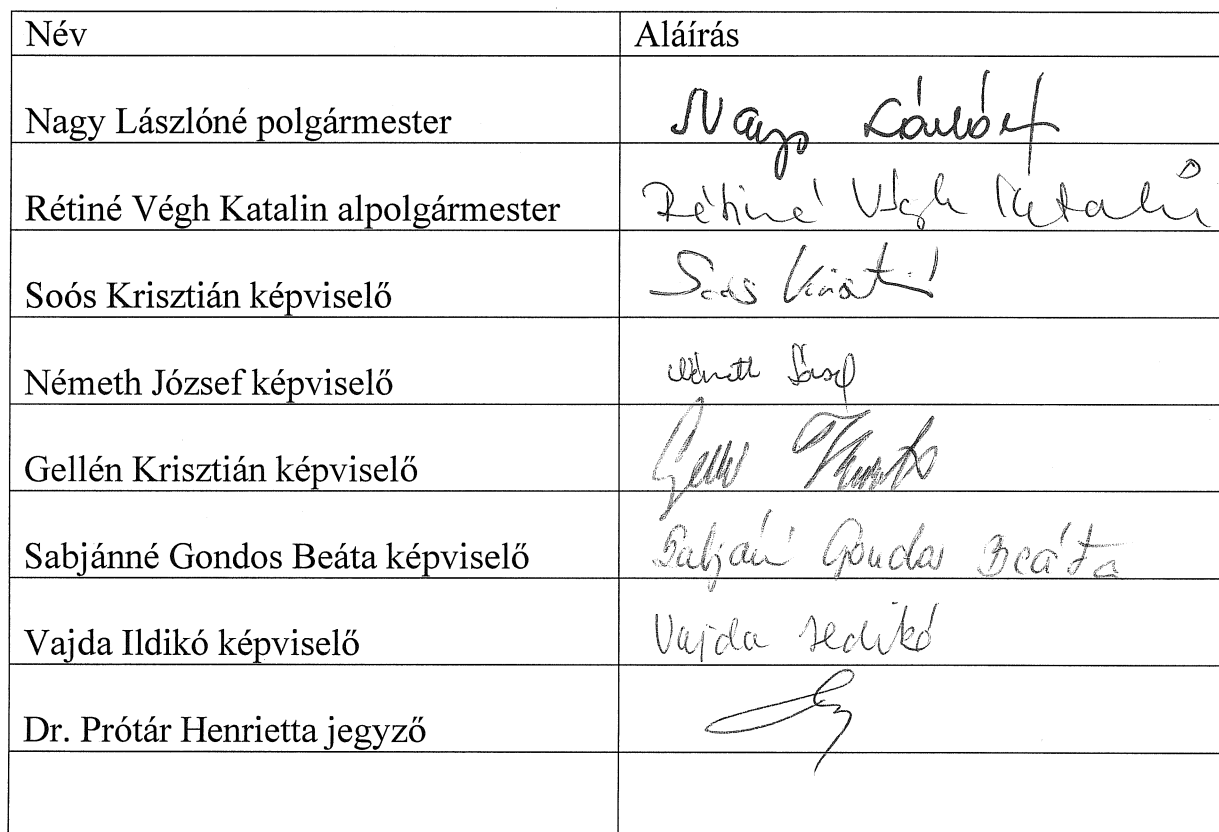 Név Aláírás
Nagy Lászlóné polgármester Nagy
Rétiné Végh Katalin alpolgármester Rétiné Végh Katalin
Soós Krisztián képviselő Soós
Németh József képviselő Németh József
Gellén Krisztián képviselő
Sabjánné Gondos Beáta képviselő Gondos Beáta
Vajda Ildikó képviselő Vajda Ildikó
Dr. Prótár Henrietta jegyző